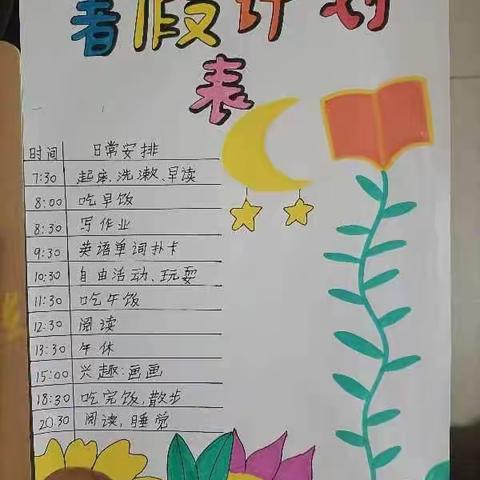 暑假计划
表
时间 日常安排
7:30 起床、洗漱、早读
8:00 吃早饭
8:30 写作业
9:30 英语单词扑卡
10:30 自由活动、玩耍
11:30 吃午饭
12:30 阅读
13:30 午休
15:00 兴趣:画画
18:30 吃完饭,散步
20:30 阅读,睡觉